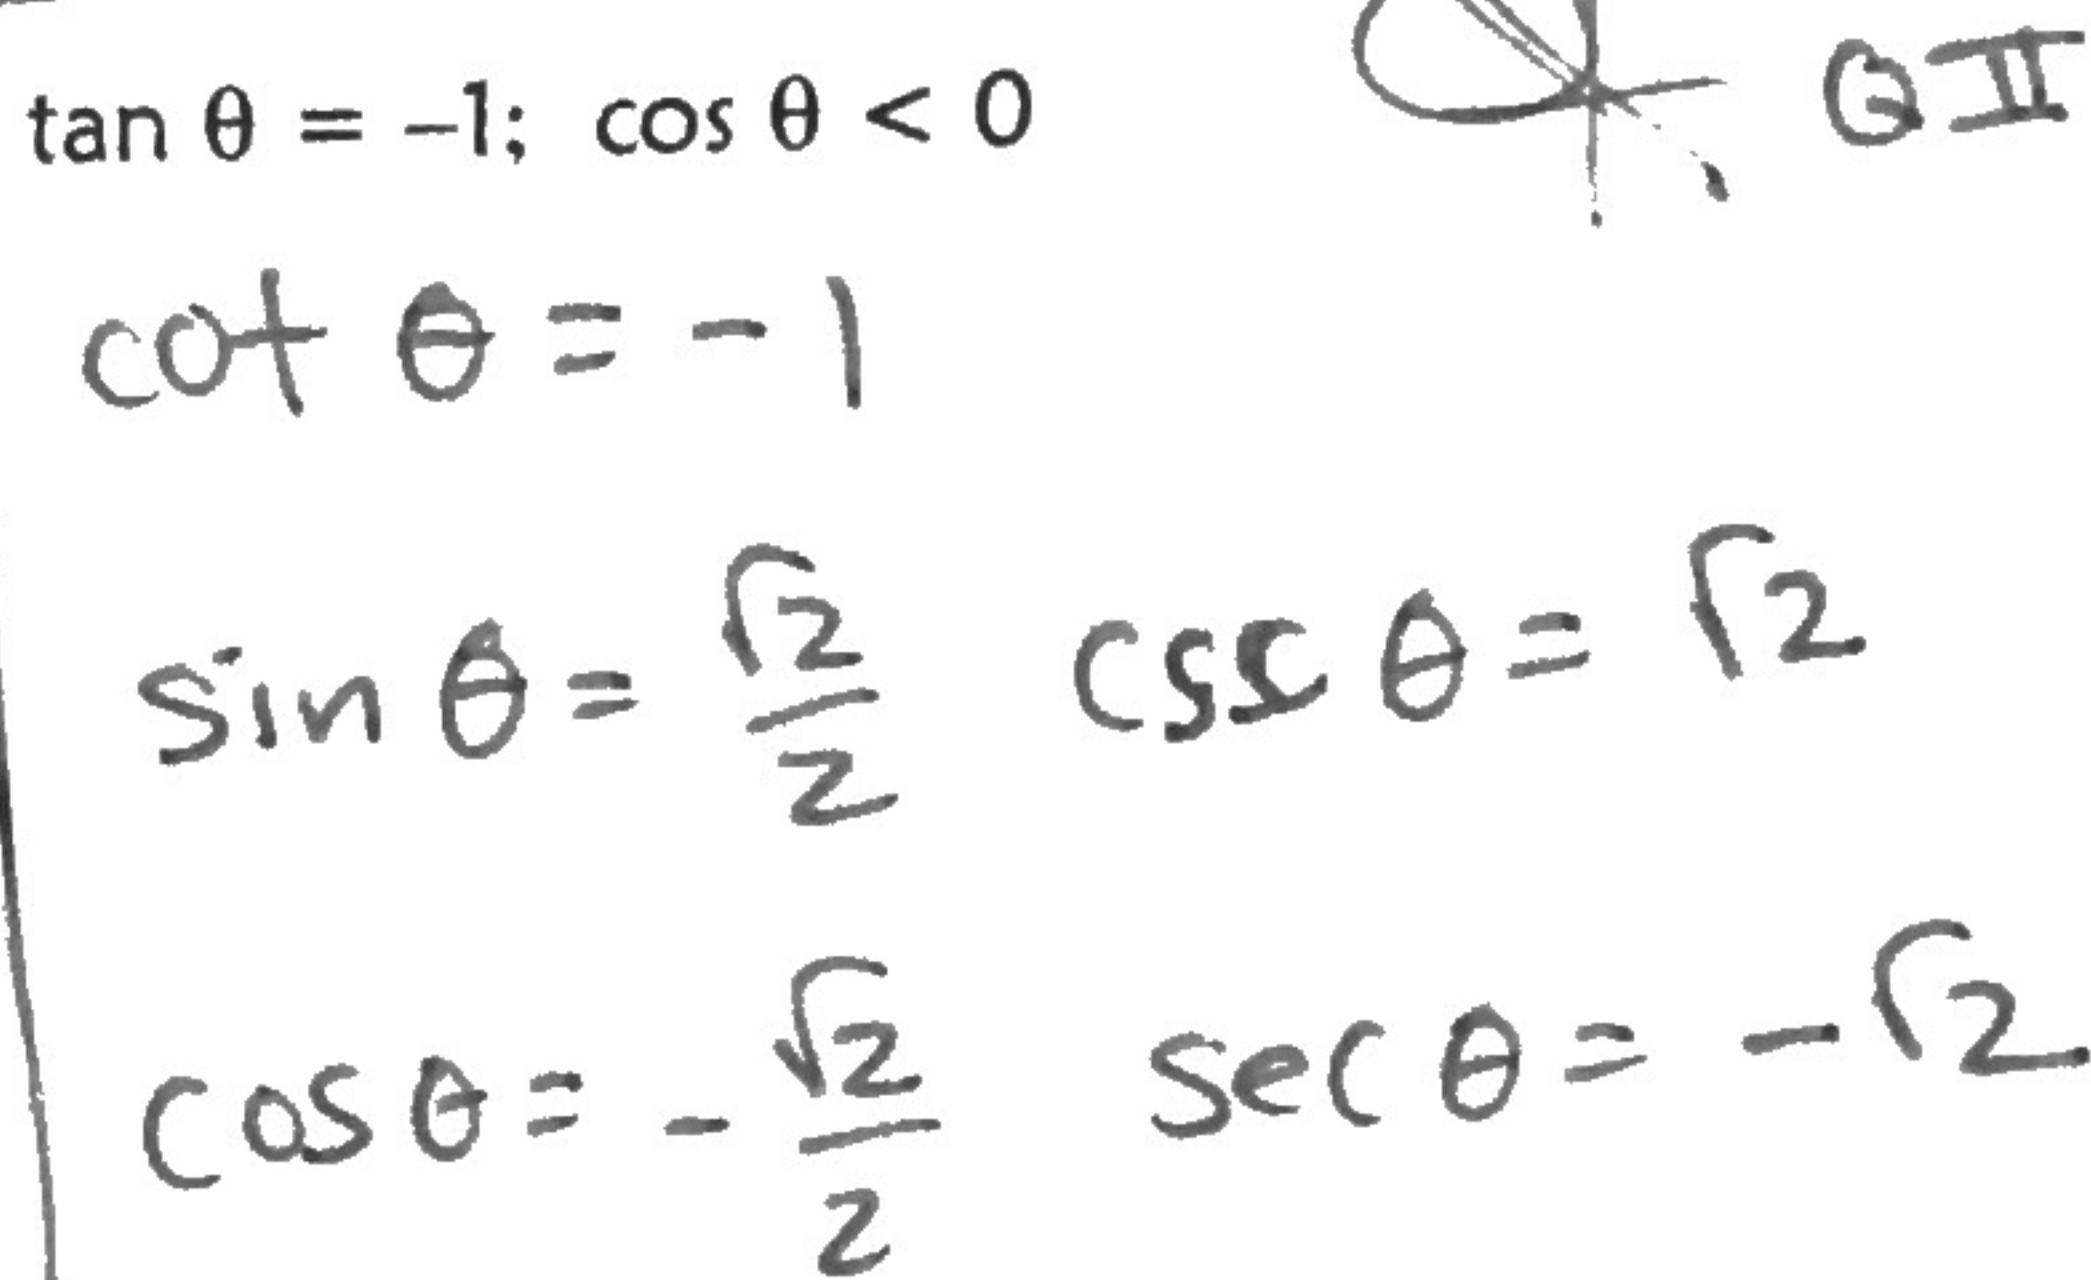 tan θ = –1; cos θ < 0 QII
cot θ = - 1
sin θ = √2/2 csc θ = √2
cos θ = - √2/2 sec θ = - √2